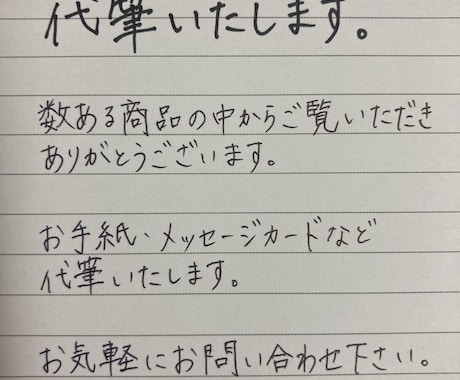 代筆いたします。
数ある商品の中からご覧いただき
ありがとうございます。
お手紙・メッセージカードなど
代筆いたします。
お気軽にお問い合わせ下さい。